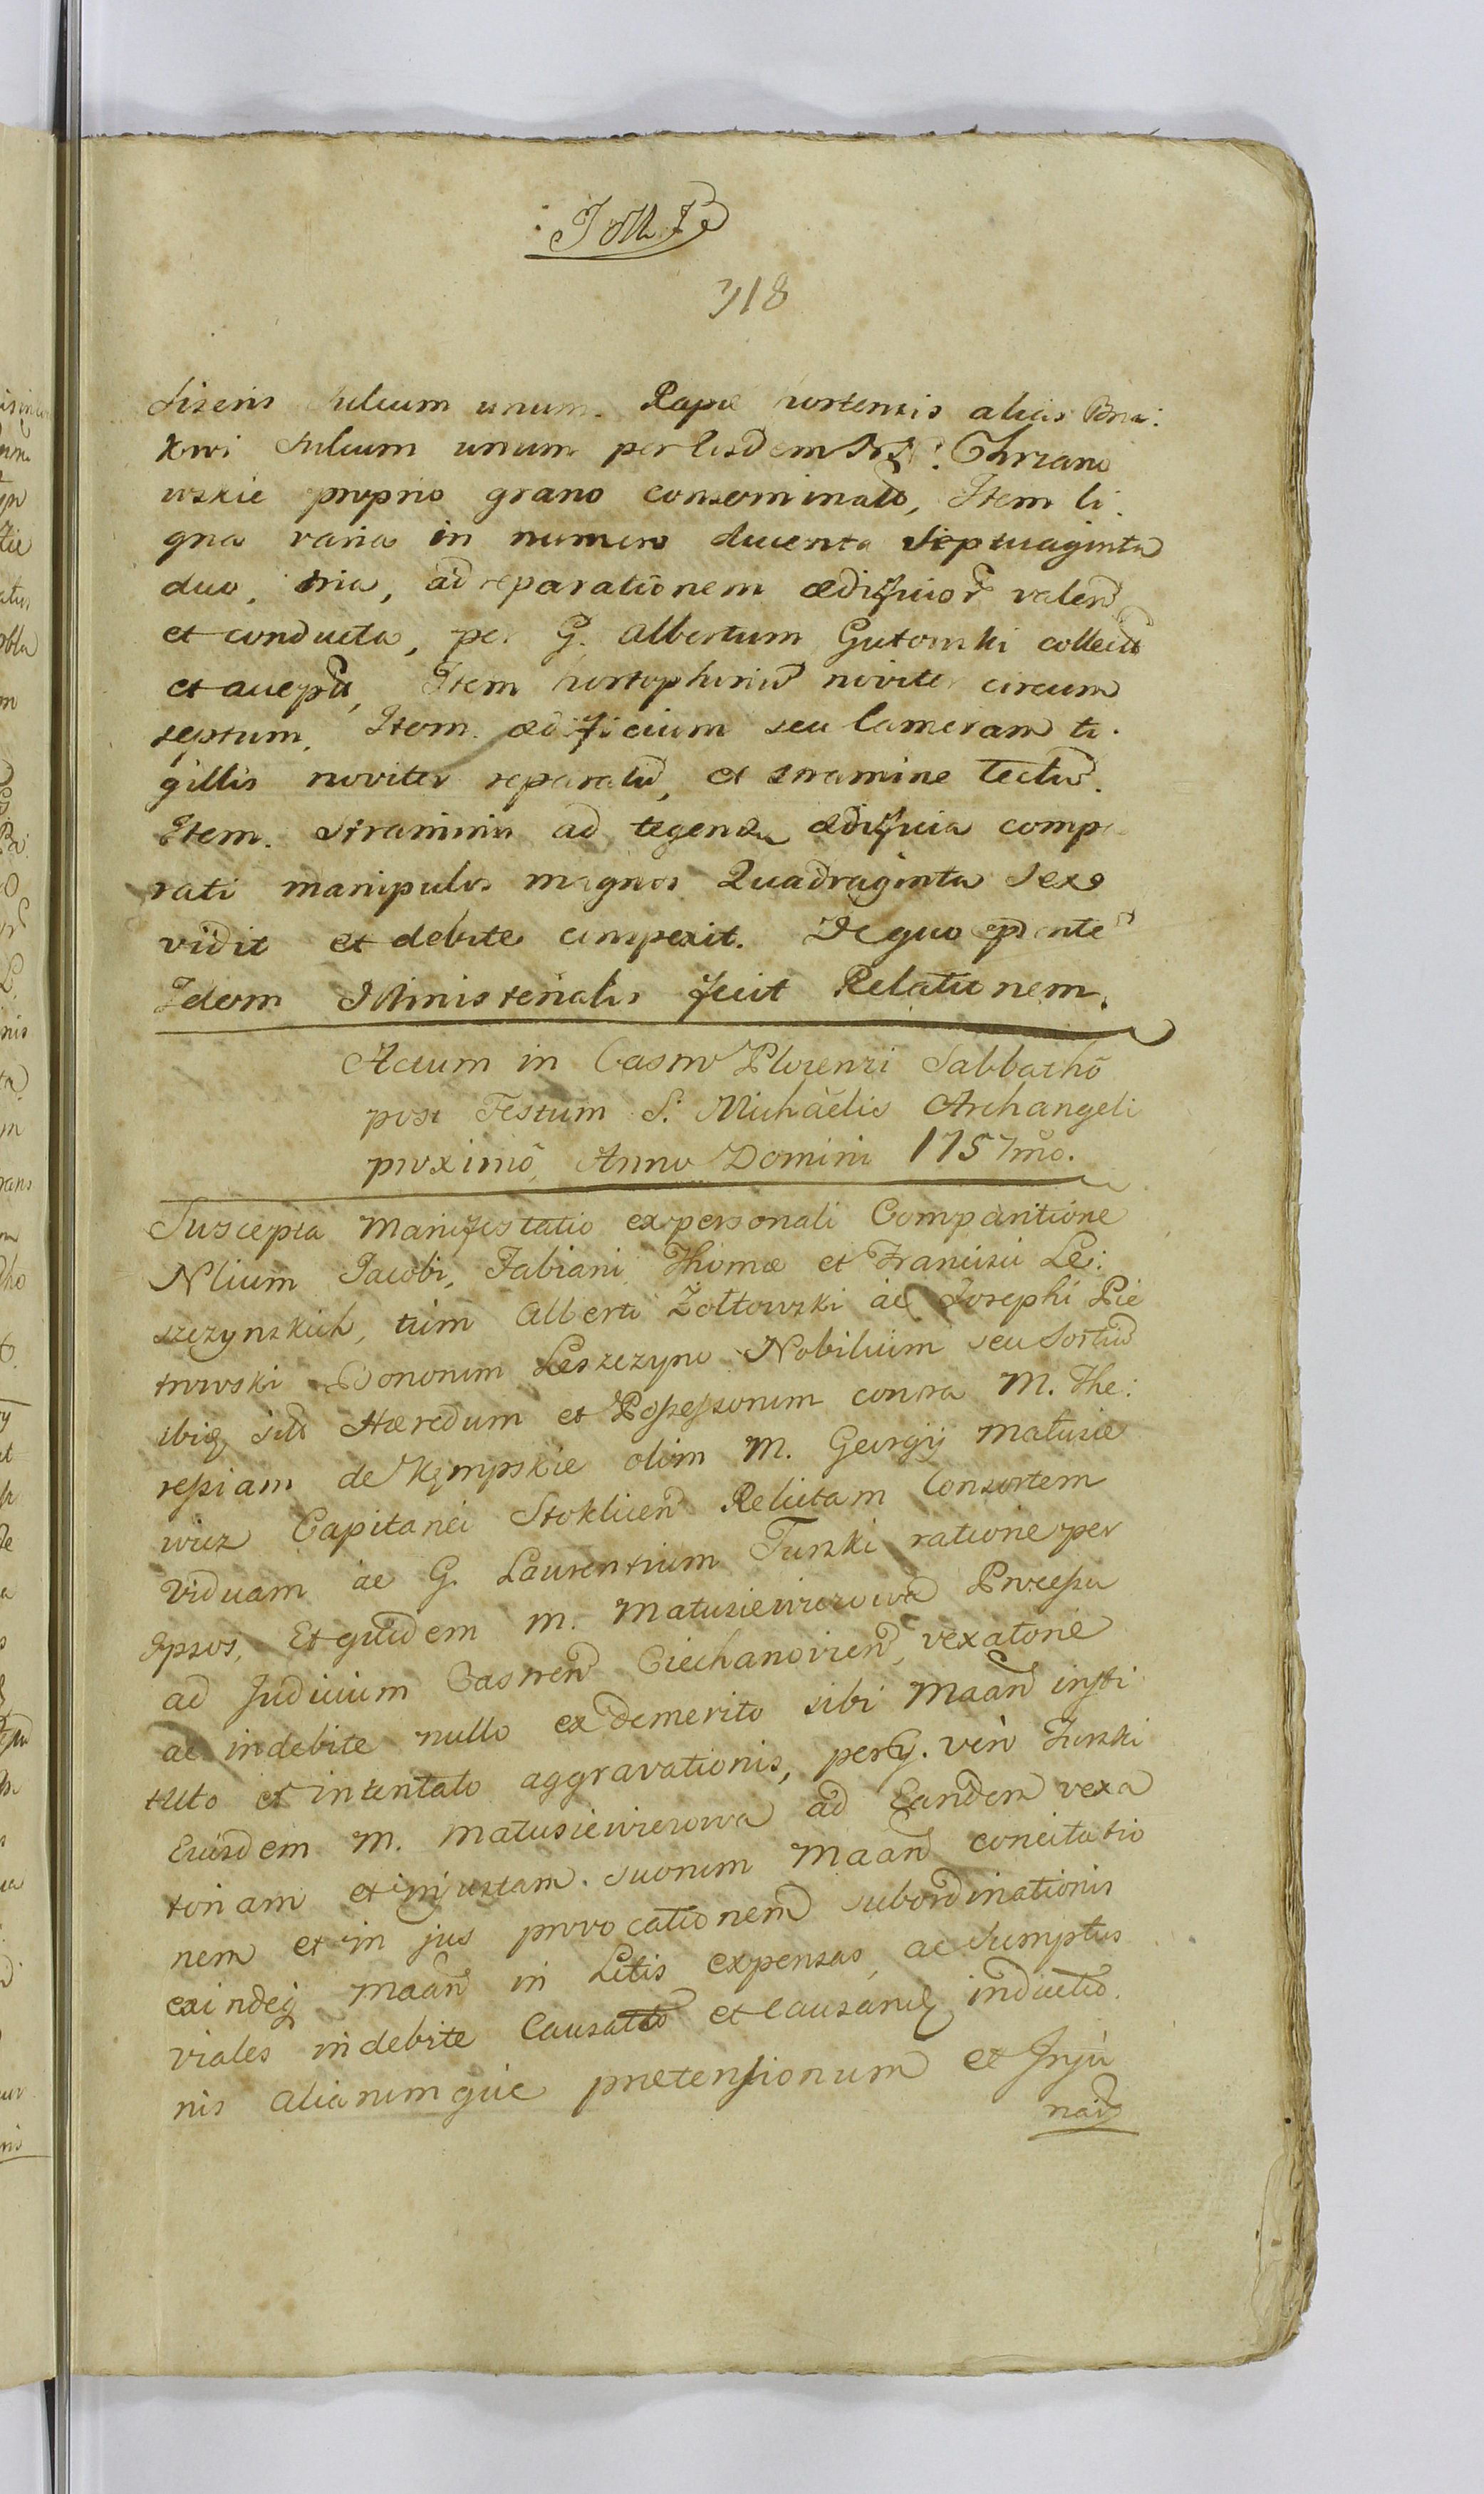 718
Siseris sulcum unum. Rapæ hortensis alias Bru:
kwi sulcum unum per eosdem NN: Chrzano
wskie proprio grano conseminato, Item li:
gna varia in numero ducenta Septuaginta
duo, tria, ad reparationem ædificior valen
et conducta, per G. Albertum Gutomski collecta
et accepta, Item hortophinium noviter circum
septum, Item ædificium seu Cameram ti:
gillis noviter reparatum, et stramine tectum.
Item. Straminis ad tegenda ædificia compa
rati manipulos magnos Quadraginta Sex
vidit et debite comperit. De quo
Idem Ministerialis fecit Relationem.
Actum in Castro Plocensi Sabbathô
post Festum S. Michaëlis Archangeli
proximô, Anno Domini 1757mô.
Suscepta Manifestatio ex personali Comparitione
Nlium Jacobi, Fabiani Thomæ et Francisci Le:
szczynskich, tùm Alberti Żołtowski ac Josephi Pie
trowski Bonorum Leszczyno Nobilium seu Sortium
ibiq sitt Hæredum et Possessorum contra M. The:
resiam de Kempskie olim M. Georgij Matusie
wicz Capitanei Stoklicen Relictam Consortem
Viduam ac G. Laurentium Turski ratione per
Ipsos, Et quidem M. Matusiewiczowa Processu
ad Judicium Castren Ciechanovien, vexatorie
ac indebite nullo ex demerito sibi Maan insti
tuto et intentato aggravationis, per G. verò Turski
Eiusdem M. Matusiewiczowa ad Eandem vexa
toriam et injustam suorum Maan concitatio
nem et in jus provocationem subordinationis
exindeq Maan in Litis expensas, ac Sumptus
viales indebite Causatto et causandq inductio
nis aliarumque prætensionum et Inju
riarq